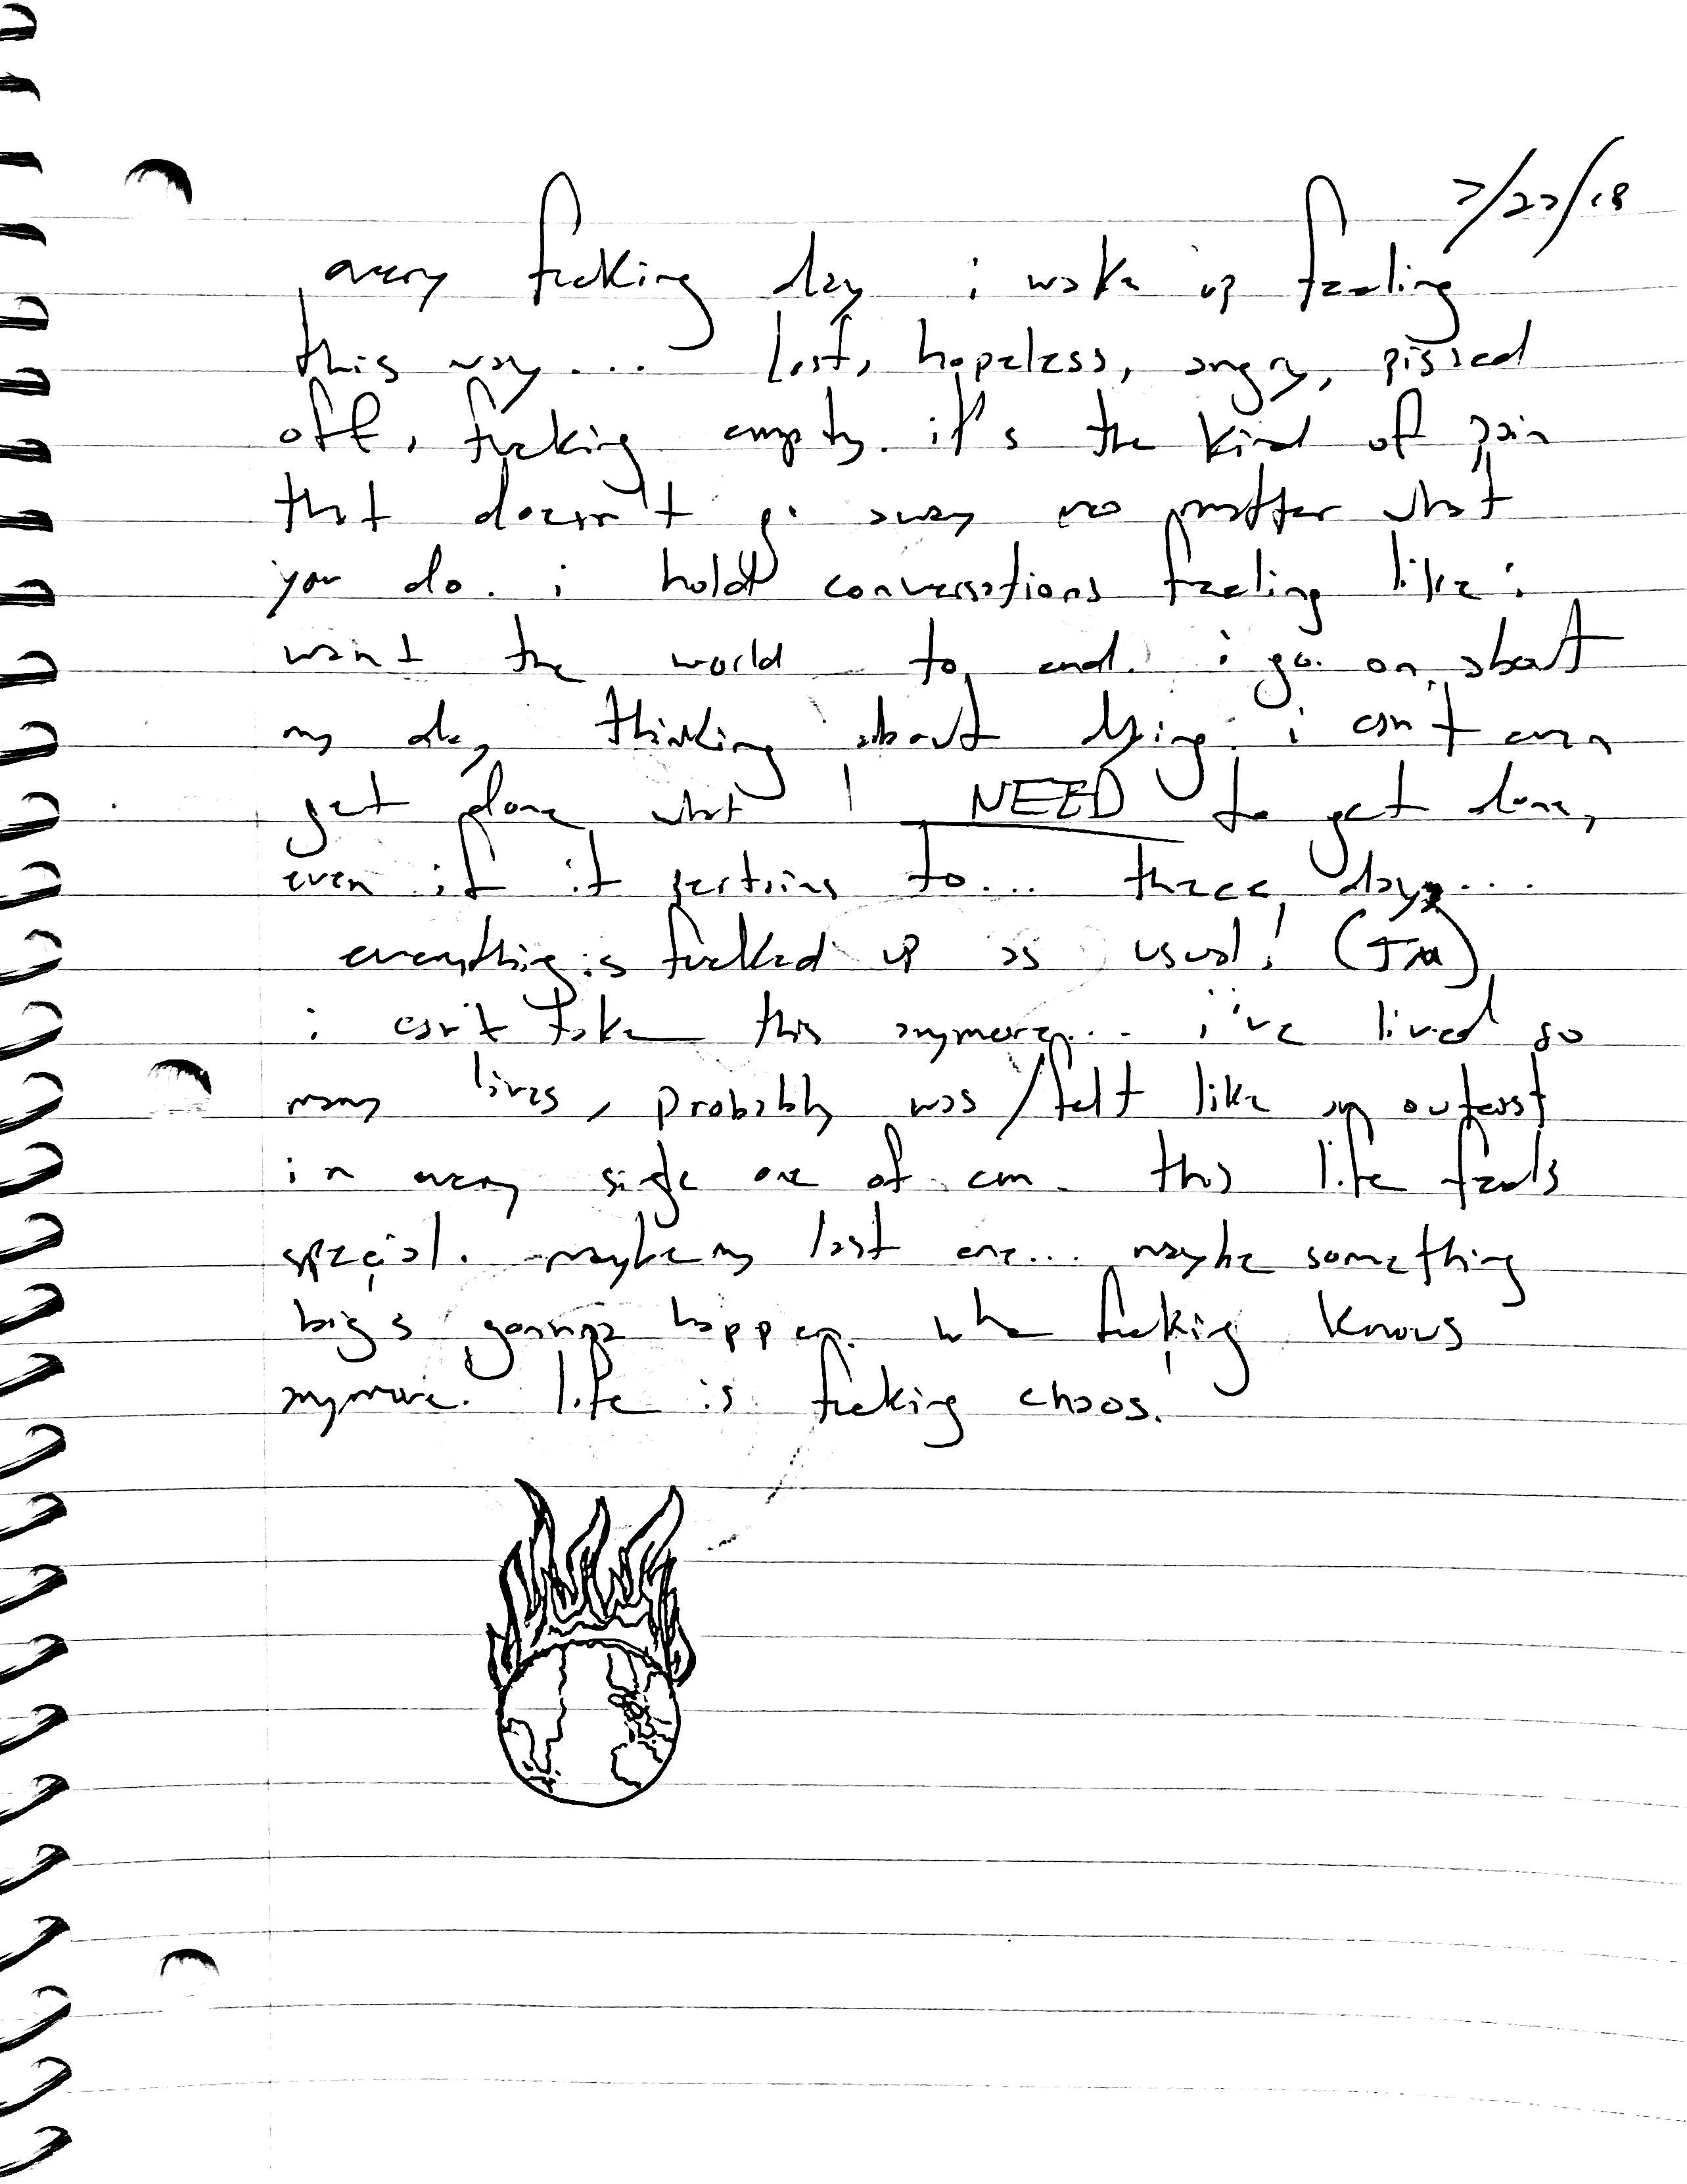 7/27/18
every fucking day i wake up feeling
this way... lost, hopeless, angry, pissed
off, fucking empty. it's the kind of pain
that doesn't go away no matter what
you do. i hold conversations feeling like i
want the world to end. i go on about
my day thinking about dying. i can't even
get done what I NEED to get done,
even if it pertains to... these days...
everything is fucked up as usual! (TM)
i can't take this anymore... i've lived so
many lives, probably was/felt like an outcast
in every single one of em. this life feels
special. maybe my last one... maybe something
big's gonna happen. who fucking knows
anymore. life is fucking chaos.